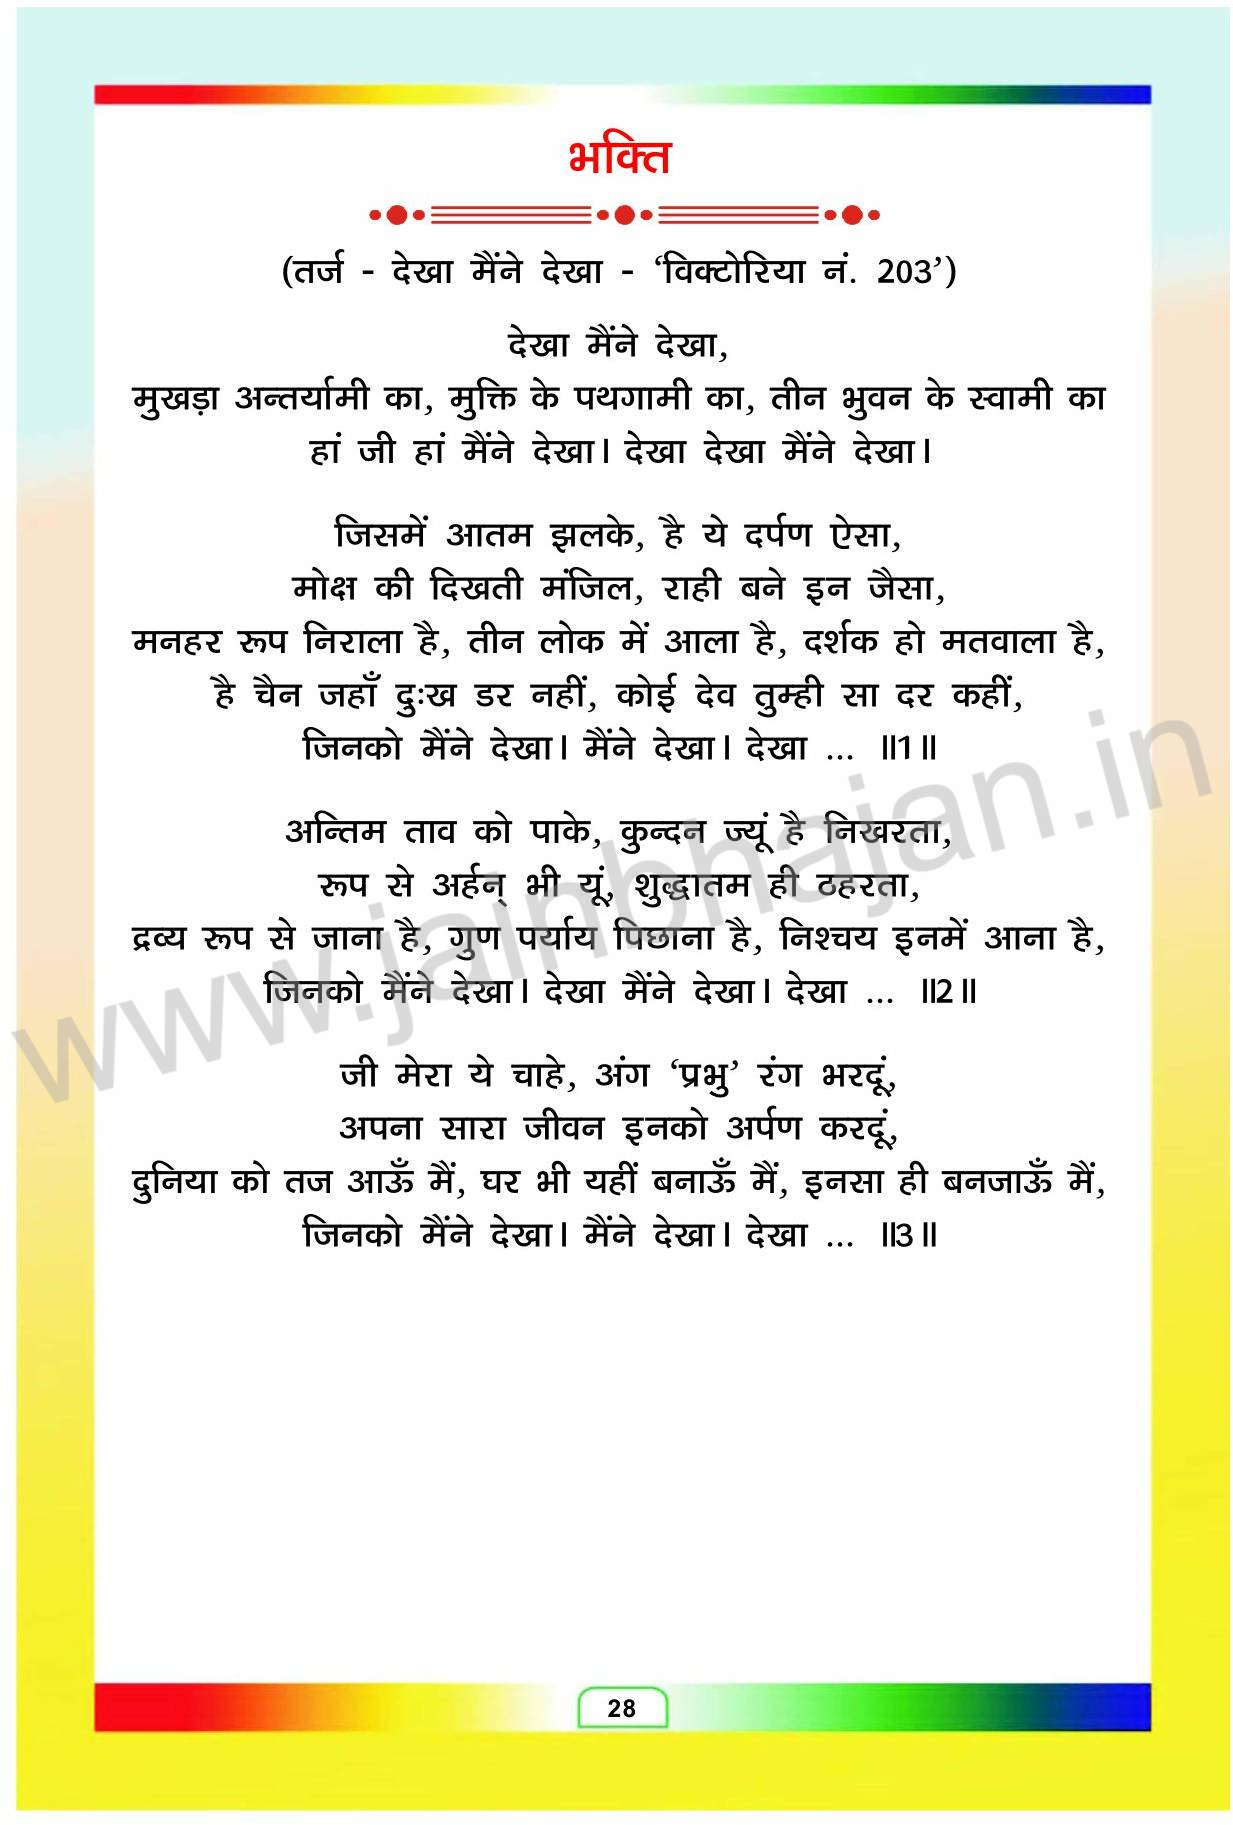 भक्ति
(तर्ज - देखा मैंने देखा - ‘विक्टोरिया नं. 203’)
देखा मैंने देखा,
मुखड़ा अन्तर्यामी का, मुक्ति के पथगामी का, तीन भुवन के स्वामी का
हां जी हां मैंने देखा। देखा देखा मैंने देखा।
जिसमें आतम झलके, है ये दर्पण ऐसा,
मोक्ष की दिखती मंजिल, राही बने इन जैसा,
मनहर रूप निराला है, तीन लोक में आला है, दर्शक हो मतवाला है,
है चैन जहाँ दुःख डर नहीं, कोई देव तुम्ही सा दर कहीं,
जिनको मैंने देखा। मैंने देखा। देखा ... ॥1॥
अन्तिम ताव को पाके, कुन्दन ज्यूं है निखरता,
रूप से अर्हन् भी यूं, शुद्धातम ही ठहरता,
द्रव्य रूप से जाना है, गुण पर्याय पिछाना है, निश्चय इनमें आना है,
जिनको मैंने देखा। देखा मैंने देखा। देखा ... ॥2॥
जी मेरा ये चाहे, अंग ‘प्रभु’ रंग भरदूं,
अपना सारा जीवन इनको अर्पण करदूं,
दुनिया को तज आऊँ मैं, घर भी यहीं बनाऊँ मैं, इनसा ही बनजाऊँ मैं,
जिनको मैंने देखा। मैंने देखा। देखा ... ॥3॥
www.jainbhajan.in
28